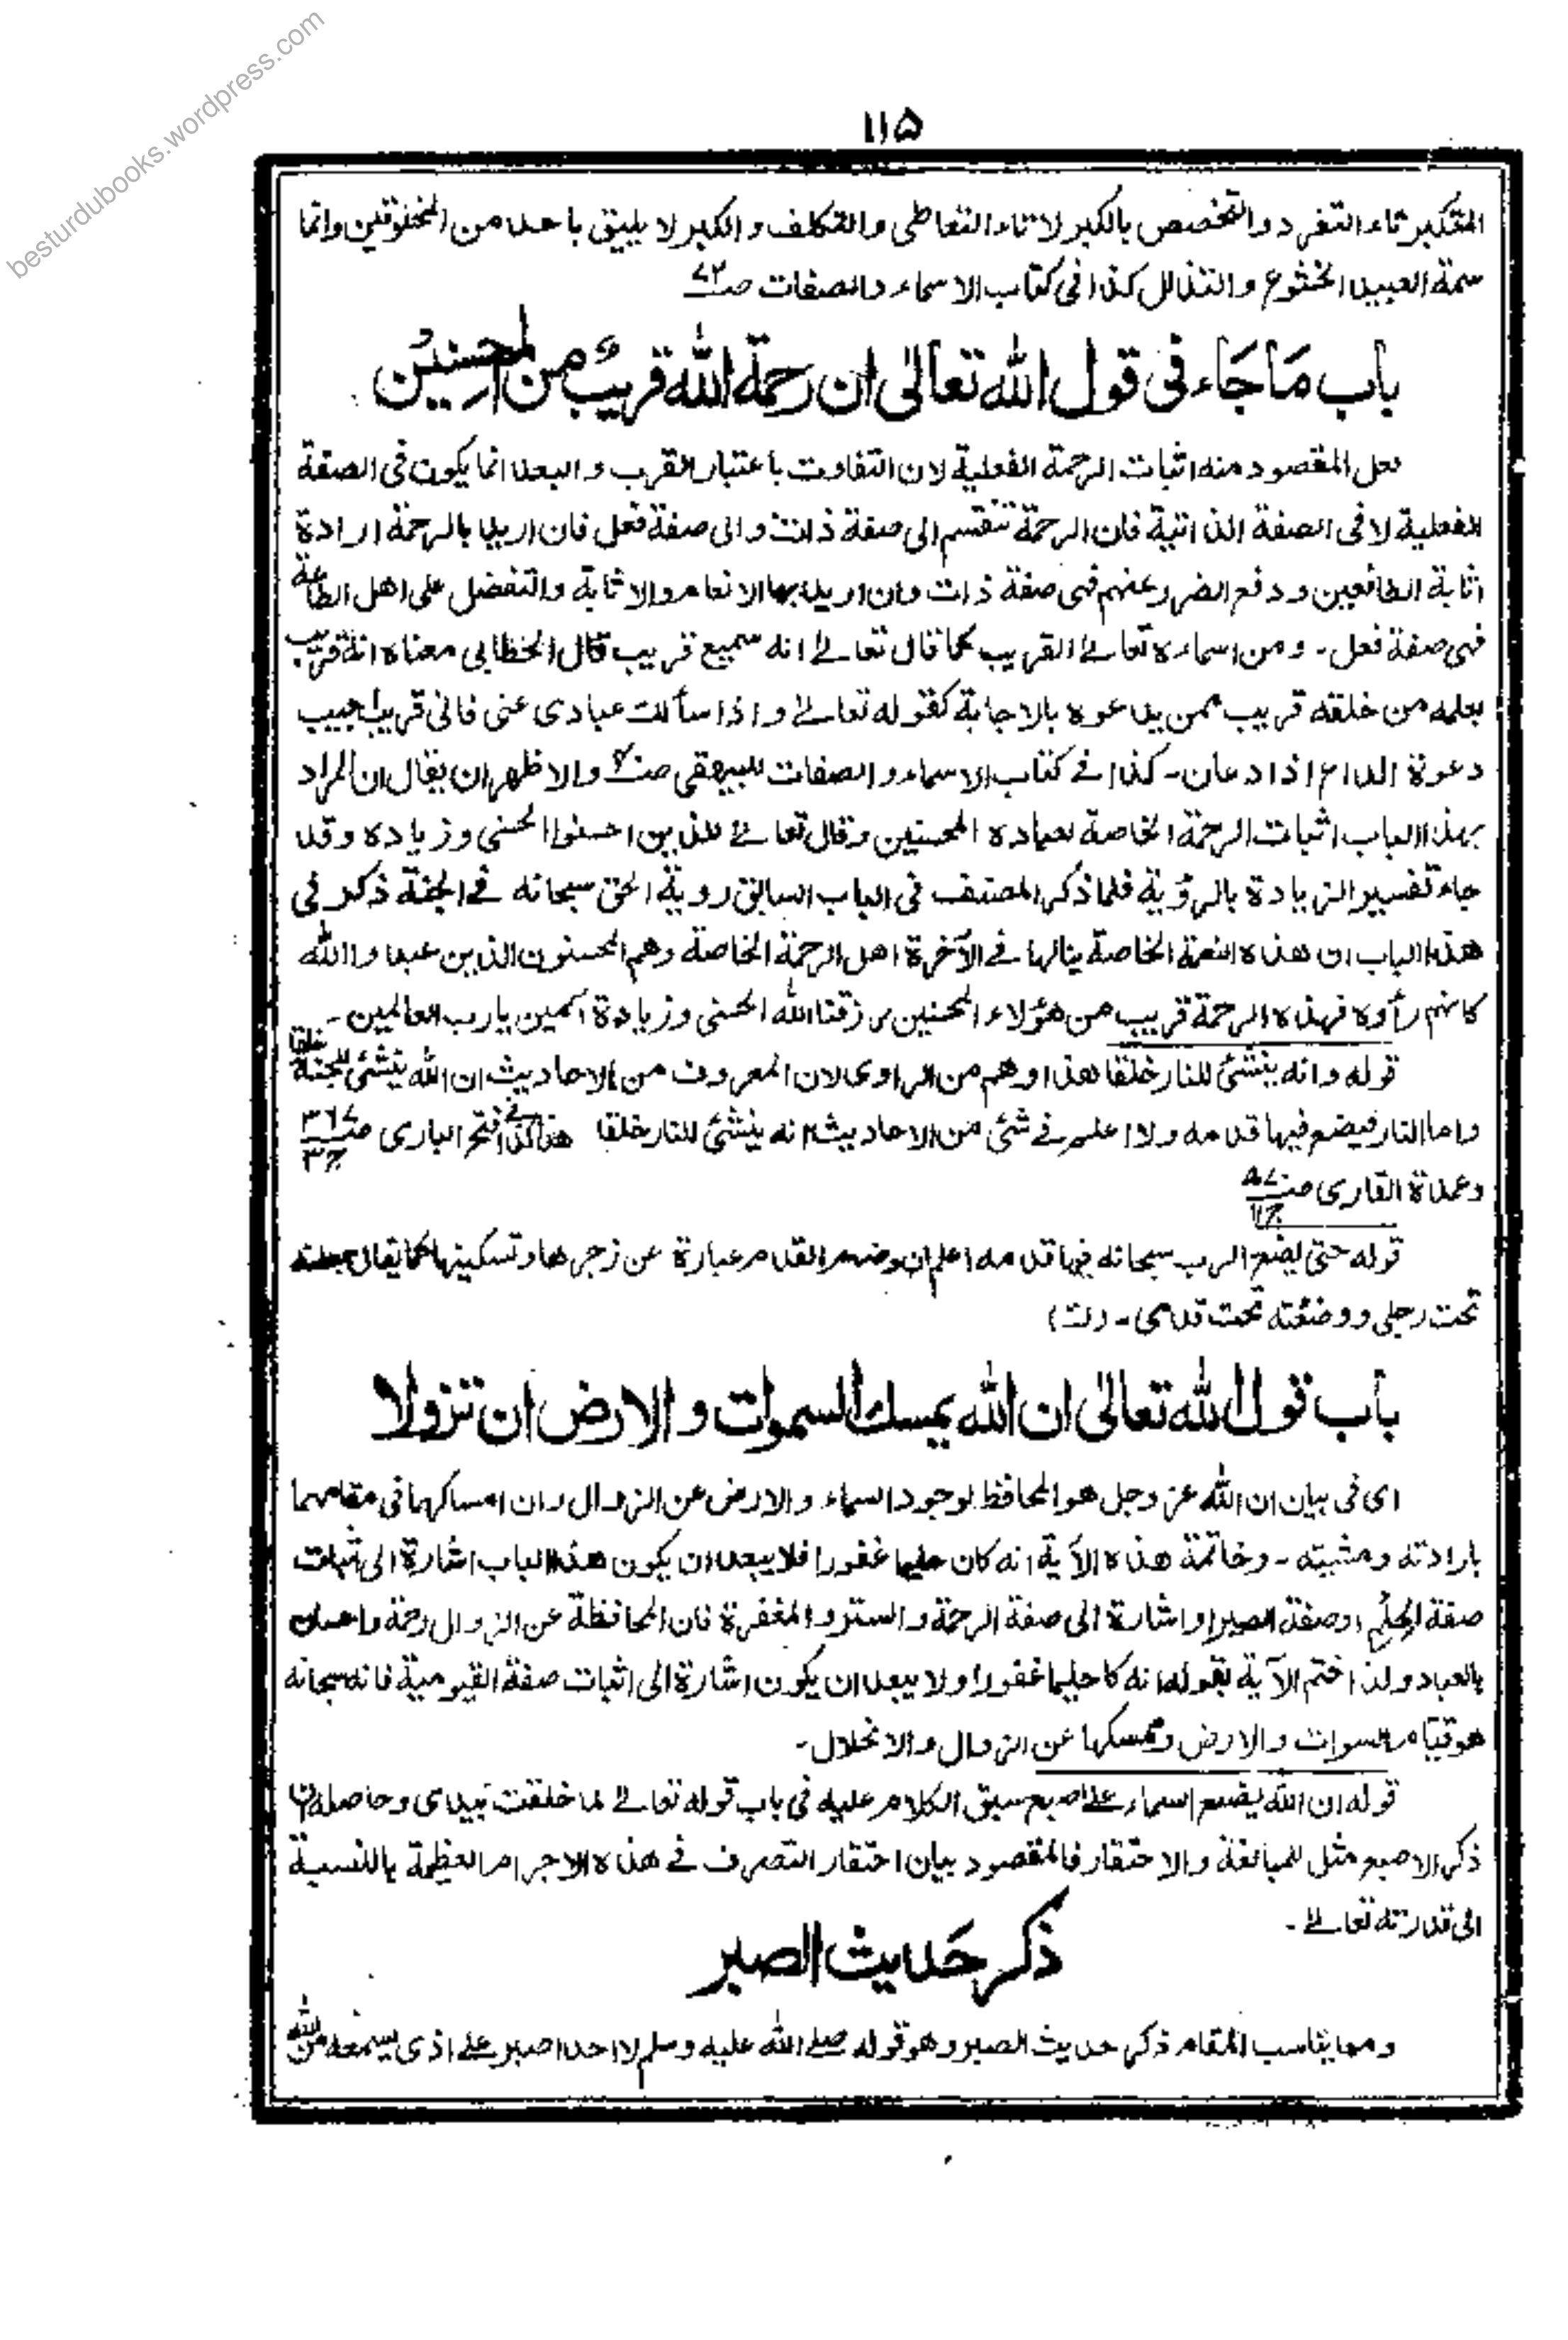 besturdubooks.wordpress.com
۱۱۵
المتكبر تاء التفرد والتخصص بالكبر لا تاء التعاطى والتكلف والكبر لا يليق باحد من المخلوقين وانما
سمة العبيد الخشوع والتذلل كذا فى كتاب الاسماء والصفات صـ
باب ما جاء فى قول الله تعالى ان رحمة الله قريب من المحسنين
لعل المقصود منه اثبات الرحمة الفعلية لان التفاوت باعتبار القرب والبعد انما يكون فى الصفة
الفعلية لا فى الصفة الذاتية فان الرحمة تنقسم الى صفة ذات والى صفة فعل فان اريد بالرحمة ارادة
اثابة الطائعين ودفع الضر عنهم فهى صفة ذات وان اريد بها الانعام والاثابة والتفضل على اهل الطاعة
فهى صفة فعل۔ ومن اسماءه تعالے القريب كما قال تعالے انه سميع قريب قال الخطابى معناه انه قريب
بعلمه من خلقه قريب ممن يدعوه بالاجابة كقوله تعالے واذا سألك عبادى عنى فانى قريب اجيب
دعوة الداع اذا دعان۔ كذا فے كتاب الاسماء والصفات للبيهقى صـ والاظهر ان يقال ان المراد
بهذا الباب اثبات الرحمة الخاصة لعباده المحسنين وقال تعالے للذين احسنوا الحسنى وزياده وقد
جاء تفسير الزيادة بالرؤية فلما ذكر المصنف فى الباب السابق روية الحق سبحانه فے الجنة ذكر فى
هذا الباب ان هذه النعمة الخاصة ينالها فے الآخرة اهل الرحمة الخاصة وهم المحسنون الذين عبدوا الله
كانهم رأوه فهذه الرحمة قريب من هؤلاء المحسنين رزقنا الله الحسنى وزيادة آمين يارب العالمين۔
قوله وانه ينشئ للنار خلقا هذا وهم من الراوى لان المعروف من الاحاديث ان الله ينشئ للجنة خلقا
واما النار فيضع فيها قدمه ولا اعلم فے شئ من الاحاديث انه ينشئ للنار خلقا هذا كذا فے فتح البارى صـ٣٦٧ ج٣
وعمدة القارى صـ ج١١
قوله حتى يضع الرب سبحانه فيها قدمه اعلم ان وضع القدم عبارة عن زجرها وتسكينها كما يقال جعلته
تحت رجلى ووضعته تحت قدمى۔ (ت)
باب قول الله تعالى ان الله يمسك السموات والارض ان تزولا
اى فى بيان ان الله عز وجل هو المحافظ لوجود السماء والارض عن الزوال وان امساكهما فى مقامهما
بارادته ومشيته۔ وخاتمة هذه الآية انه كان حليما غفورا فلا يبعد ان يكون هذا الباب اشارة الى اثبات
صفة الحلم اوصفة الصبر او اشارة الى صفة الرحمة والستر والمغفرة فان المحافظة عن الزوال رحمة واحسان
بالعباد ولذا ختم الآية بقوله انه كا حليما غفورا ولا يبعد ان يكون اشارة الى اثبات صفة القيومية فانه سبحانه
هو قيام السموات والارض وممسكها عن الزوال والانحلال۔
قوله ان الله يضع السماء علے اصبع سبق الكلام عليه فى باب قوله تعالے لما خلقت بيدى وحاصله ان
ذكر الاصبع مثل للمبالغة والاحتقار فالمقصود بيان احتقار التصرف فے هذه الاجرام العظيمة بالنسبة
الى قدرته تعالے۔
ذكر حديث الصبر
ومما يناسب المقام ذكر حديث الصبر وهو قوله صلے الله عليه وسلم لا احد اصبر علے اذى يسمعه من الله